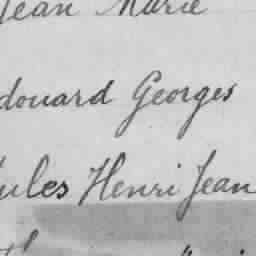 Jean Marie
douard Georges
ules Henri Jean